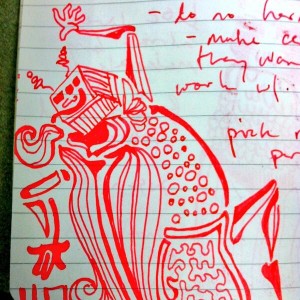 - do no har
- make ce
they wan
work w/.
pick